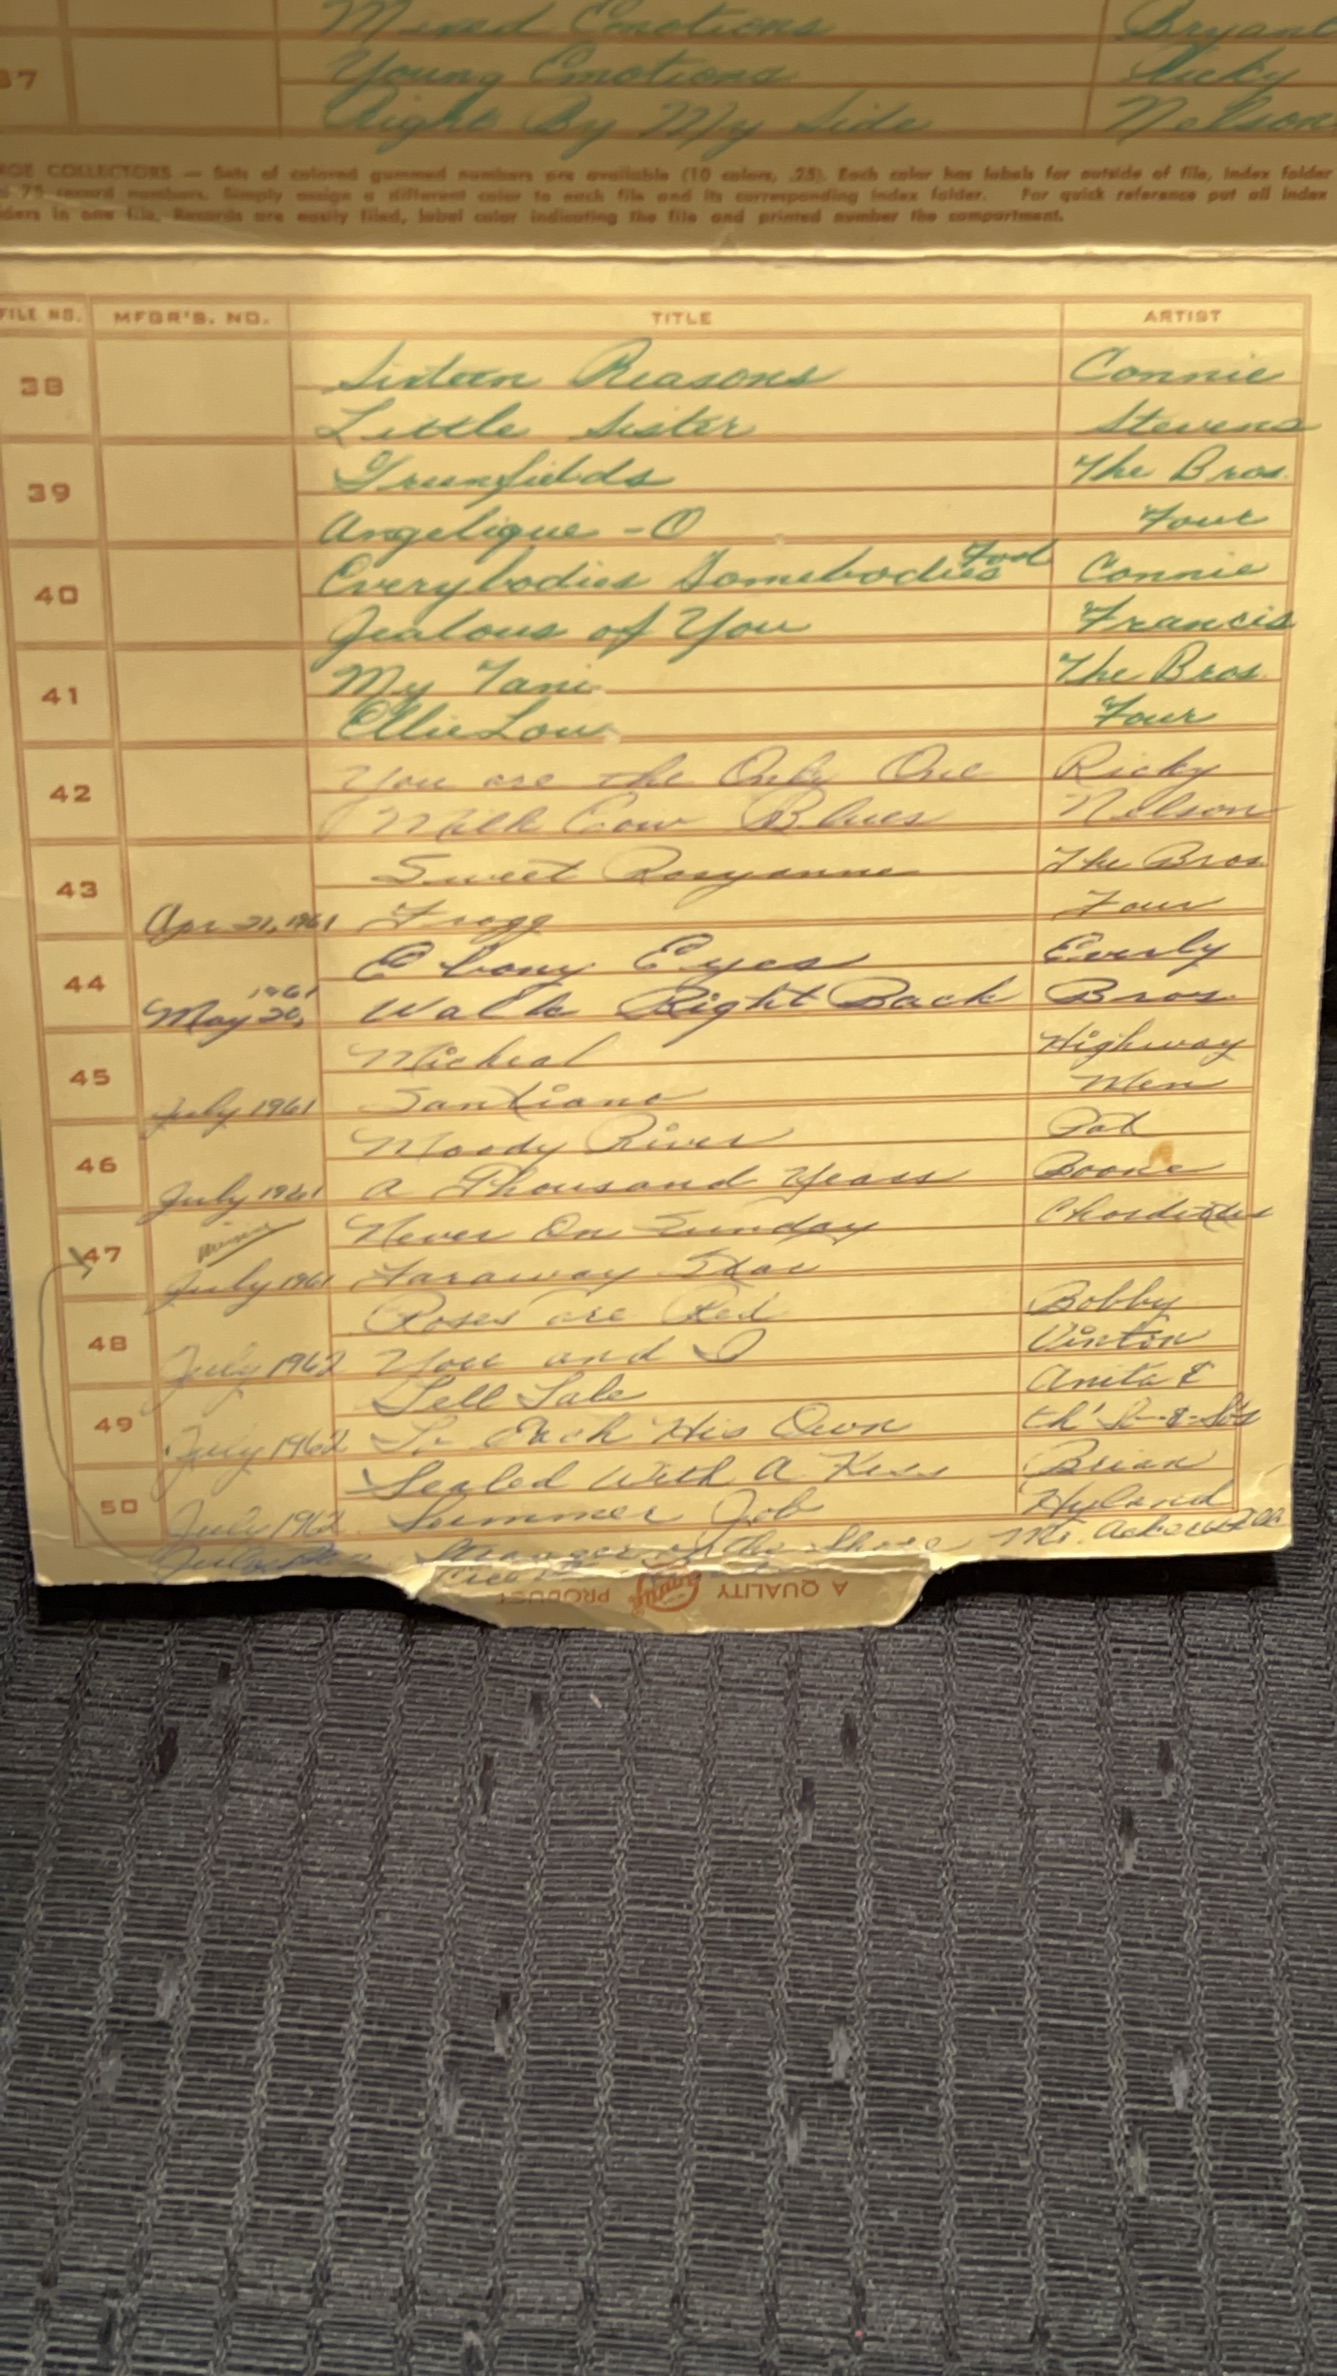 Mixed Emotions Bryant
37 Young Emotions Ricky
Right By My Side Nelson
RGE COLLECTORS — Sets of colored gummed numbers are available (10 colors, .25). Each color has labels for outside of file, index folder
75 record numbers. Simply assign a different color to each file and its corresponding index folder. For quick reference put all index
ders in one file. Records are easily filed, label color indicating the file and printed number the compartment.
FILE NO. MFGR'S. NO. TITLE ARTIST
38 Sixteen Reasons Connie
Little Sister Stevens
39 Greenfields The Bros.
Angelique - O Four
40 Everybodies Somebodies Fool Connie
Jealous of You Francis
41 My Tani The Bros.
Ellie Lou Four
42 You are the Only One Ricky
Milk Cow Blues Nelson
43 Sweet Rosyanne The Bros.
Apr. 21, 1961 Frogg Four
44 Ebony Eyes Everly
May 20, 1961 Walk Right Back Bros.
45 Micheal Highway
July 1961 Santiano Men
46 Moody River Pat
July 1961 A Thousand Years Boone
47 Never On Sunday Chordettes
July 1961 Faraway Star
48 Roses are Red Bobby
July 1962 You and I Vinton
49 Tell Tale Anita &
July 1962 To Each His Own th' So-&-So's
50 Sealed With A Kiss Brian
July 1962 Summer Job Hyland
Stranger on the Shore Mr. Acker
A QUALITY PRODUCT